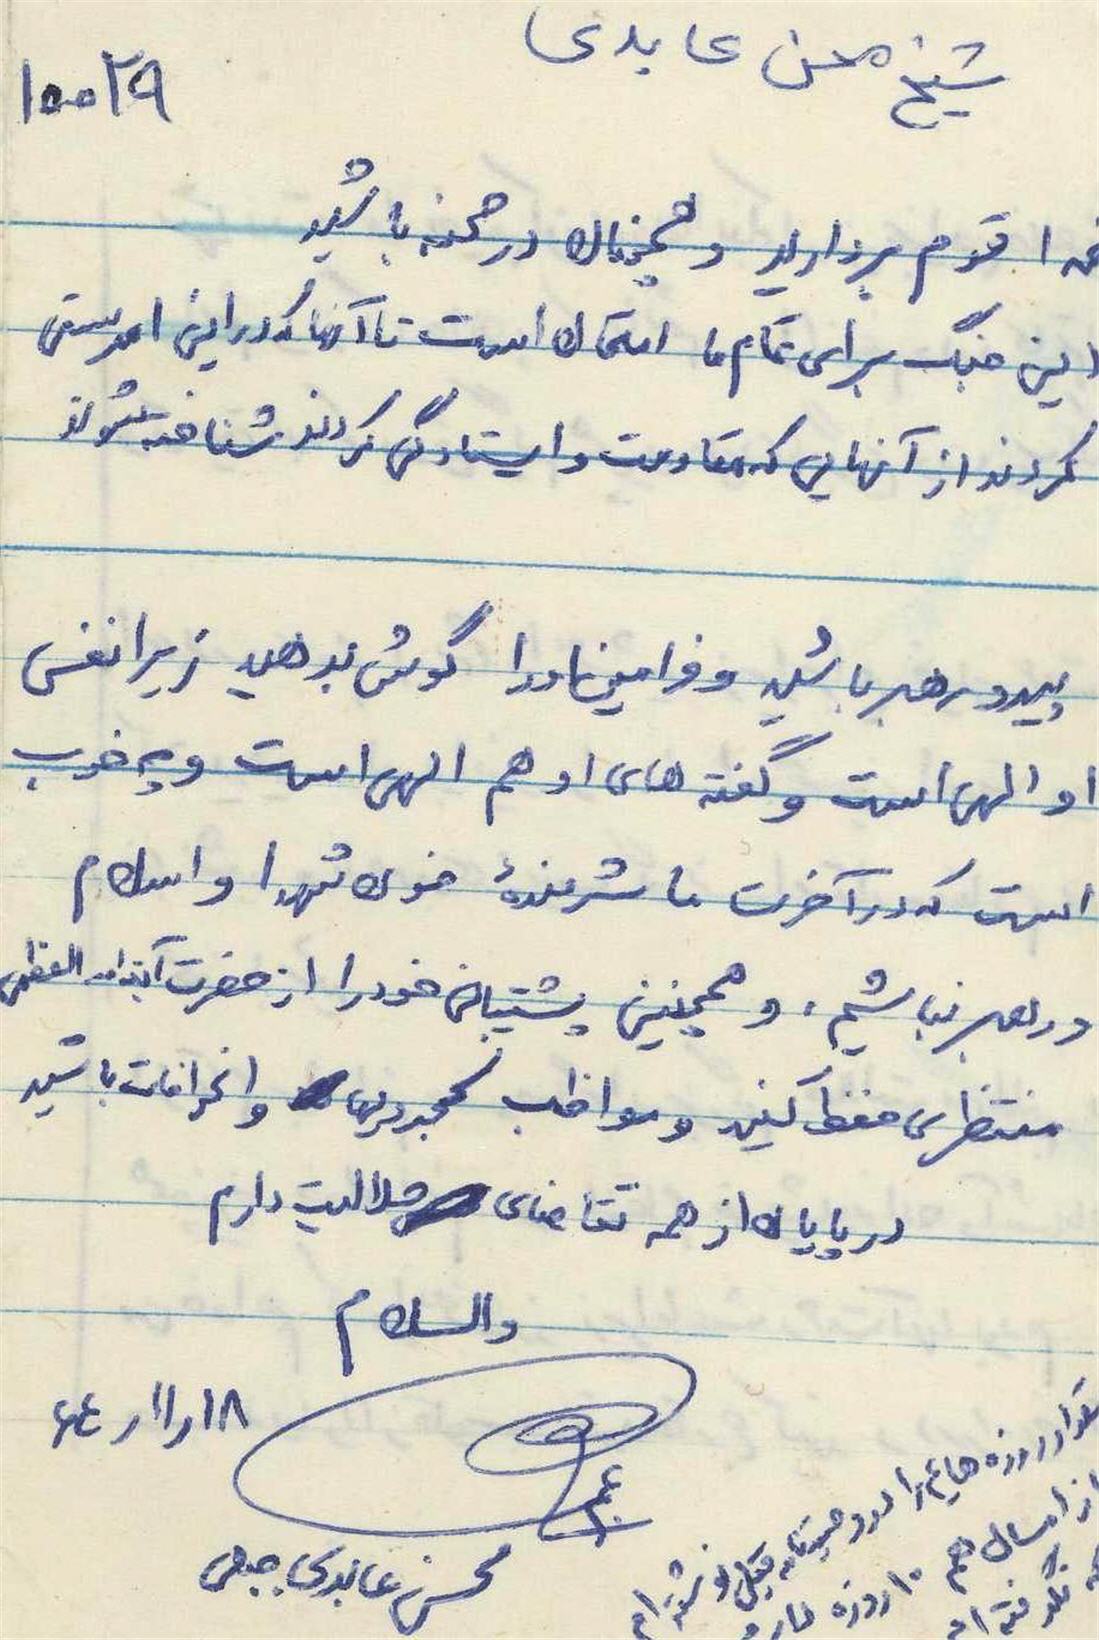 شیخ محسن عابدی
۱۰۰۲۹
قوم بردارید و همچنان در صحنه باشید
این جنگ برای تمام ما امتحان است تا آنها که در این امر سستی
کردند از آنهایی که مقاومت و ایستادگی کردند شناخته شوند
پیرو رهبر باشید و فرامین او را گوش بدهید زیرا نفس
او الهی است و گفته های او هم الهی است و چه خوب
است که در آخرت ما شرمندهٔ خون شهدا و اسلام
و رهبر نباشیم. و همچنین پشتیبانی خود را از حضرت آیت الله العظمی
منتظری حفظ کنید و مواظب کجرویها و انحرافات باشید
در پایان از همه تقاضای حلالیت دارم
والسلام
۱۸ر۱۱ر۶۴
محسن عابدی
روزه هایم را در وصیتنامه قبلی نوشته ام
از امسال هم ۱۰ روزه
نگرفته ام